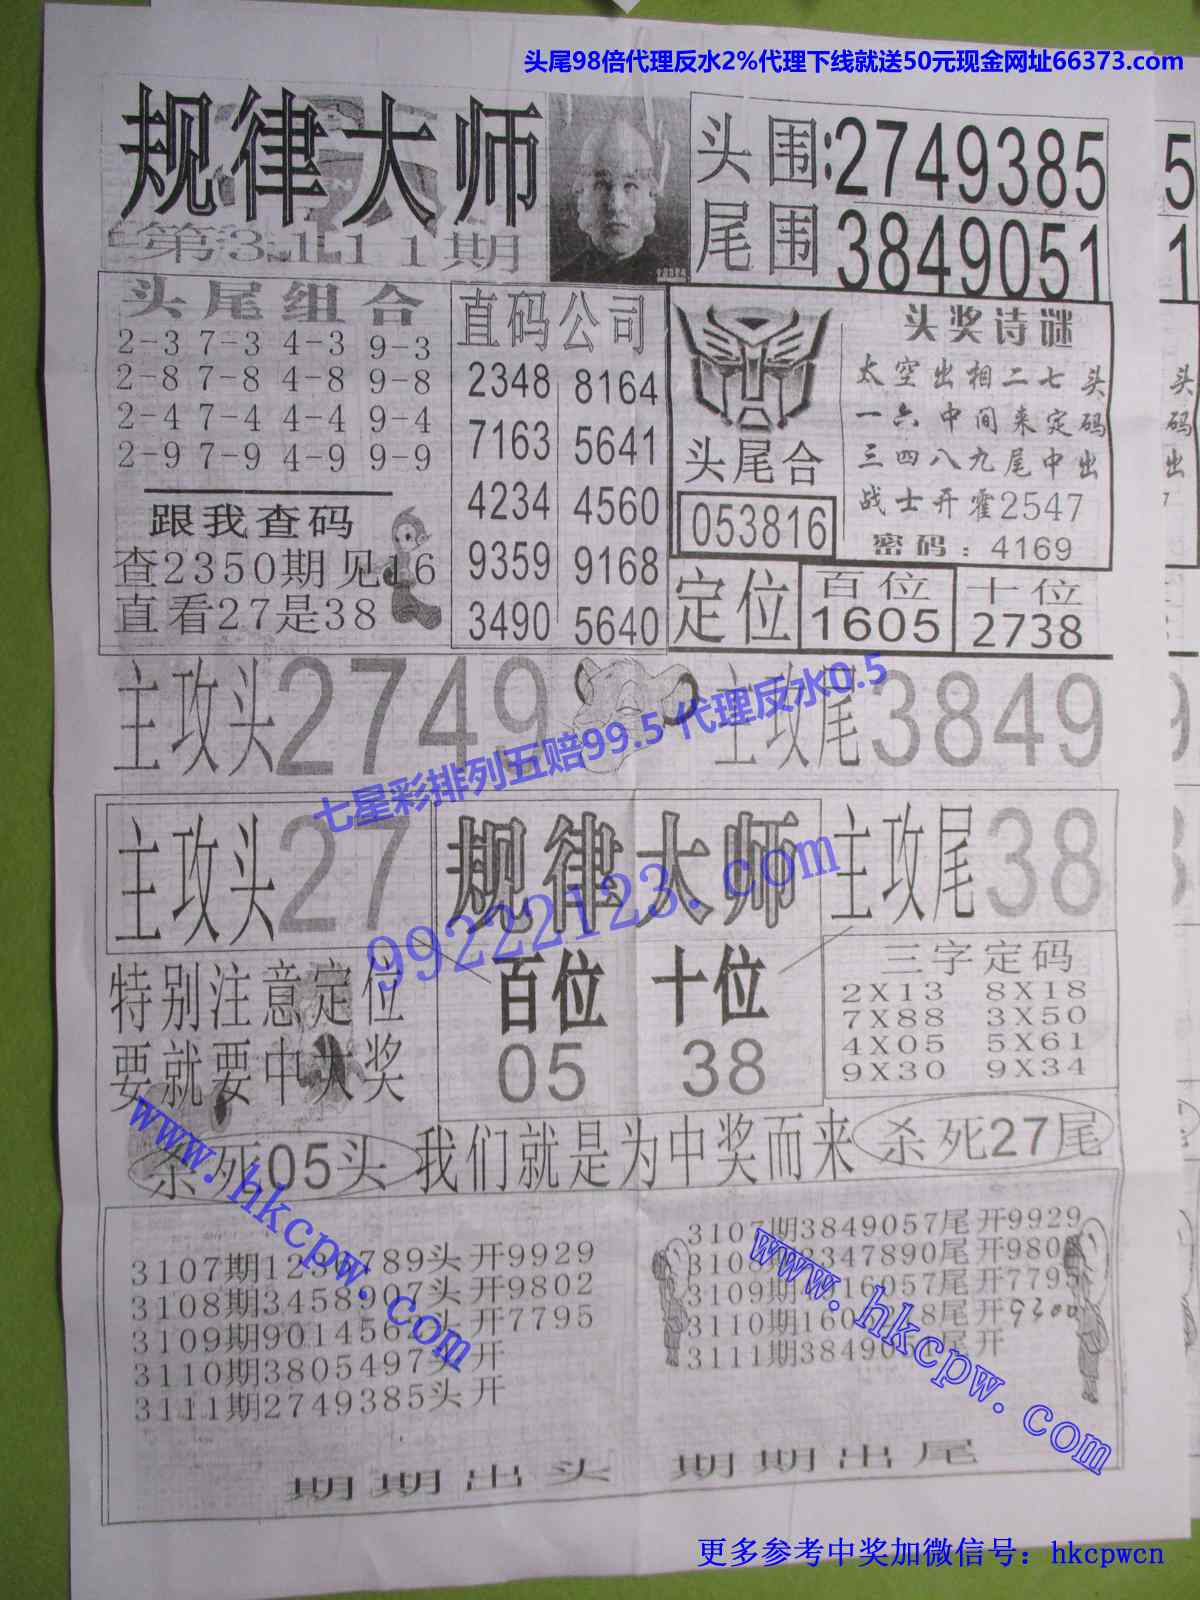 头尾98倍代理反水2%代理下线就送50元现金网址66373.com
规律大师
第3111期
头围:2749385
尾围 3849051
5
1
头尾组合
2-3 7-3 4-3 9-3
2-8 7-8 4-8 9-8
2-4 7-4 4-4 9-4
2-9 7-9 4-9 9-9
跟我查码
查2350期见16
直看27是38
直码公司
2348 8164
7163 5641
4234 4560
9359 9168
3490 5640
头尾合
053816
头奖诗谜
太空出相二七头
一六中间来定码
三四八九尾中出
战士开霍2547
密码:4169
头
码
出
定位
百位
1605
十位
2738
主攻头2749
主攻尾3849
七星彩排列五赔99.5 代理反水0.5
主攻头27
规律大师
主攻尾38
99222123.com
特别注意定位
要就要中大奖
百位 十位
05 38
三字定码
2X13 8X18
7X88 3X50
4X05 5X61
9X30 9X34
杀死05头
我们就是为中奖而来
杀死27尾
www.hkcpw.com
3107期1236789头开9929
3108期3458907头开9802
3109期9014562头开7795
3110期3805497头开
3111期2749385头开
3107期3849057尾开9929
2347890尾开980
3109期 16057尾开7795
3110期160 8尾开9200
3111期3849051尾开
www.hkcpw.com
期期出头 期期出尾
更多参考中奖加微信号：hkcpwcn